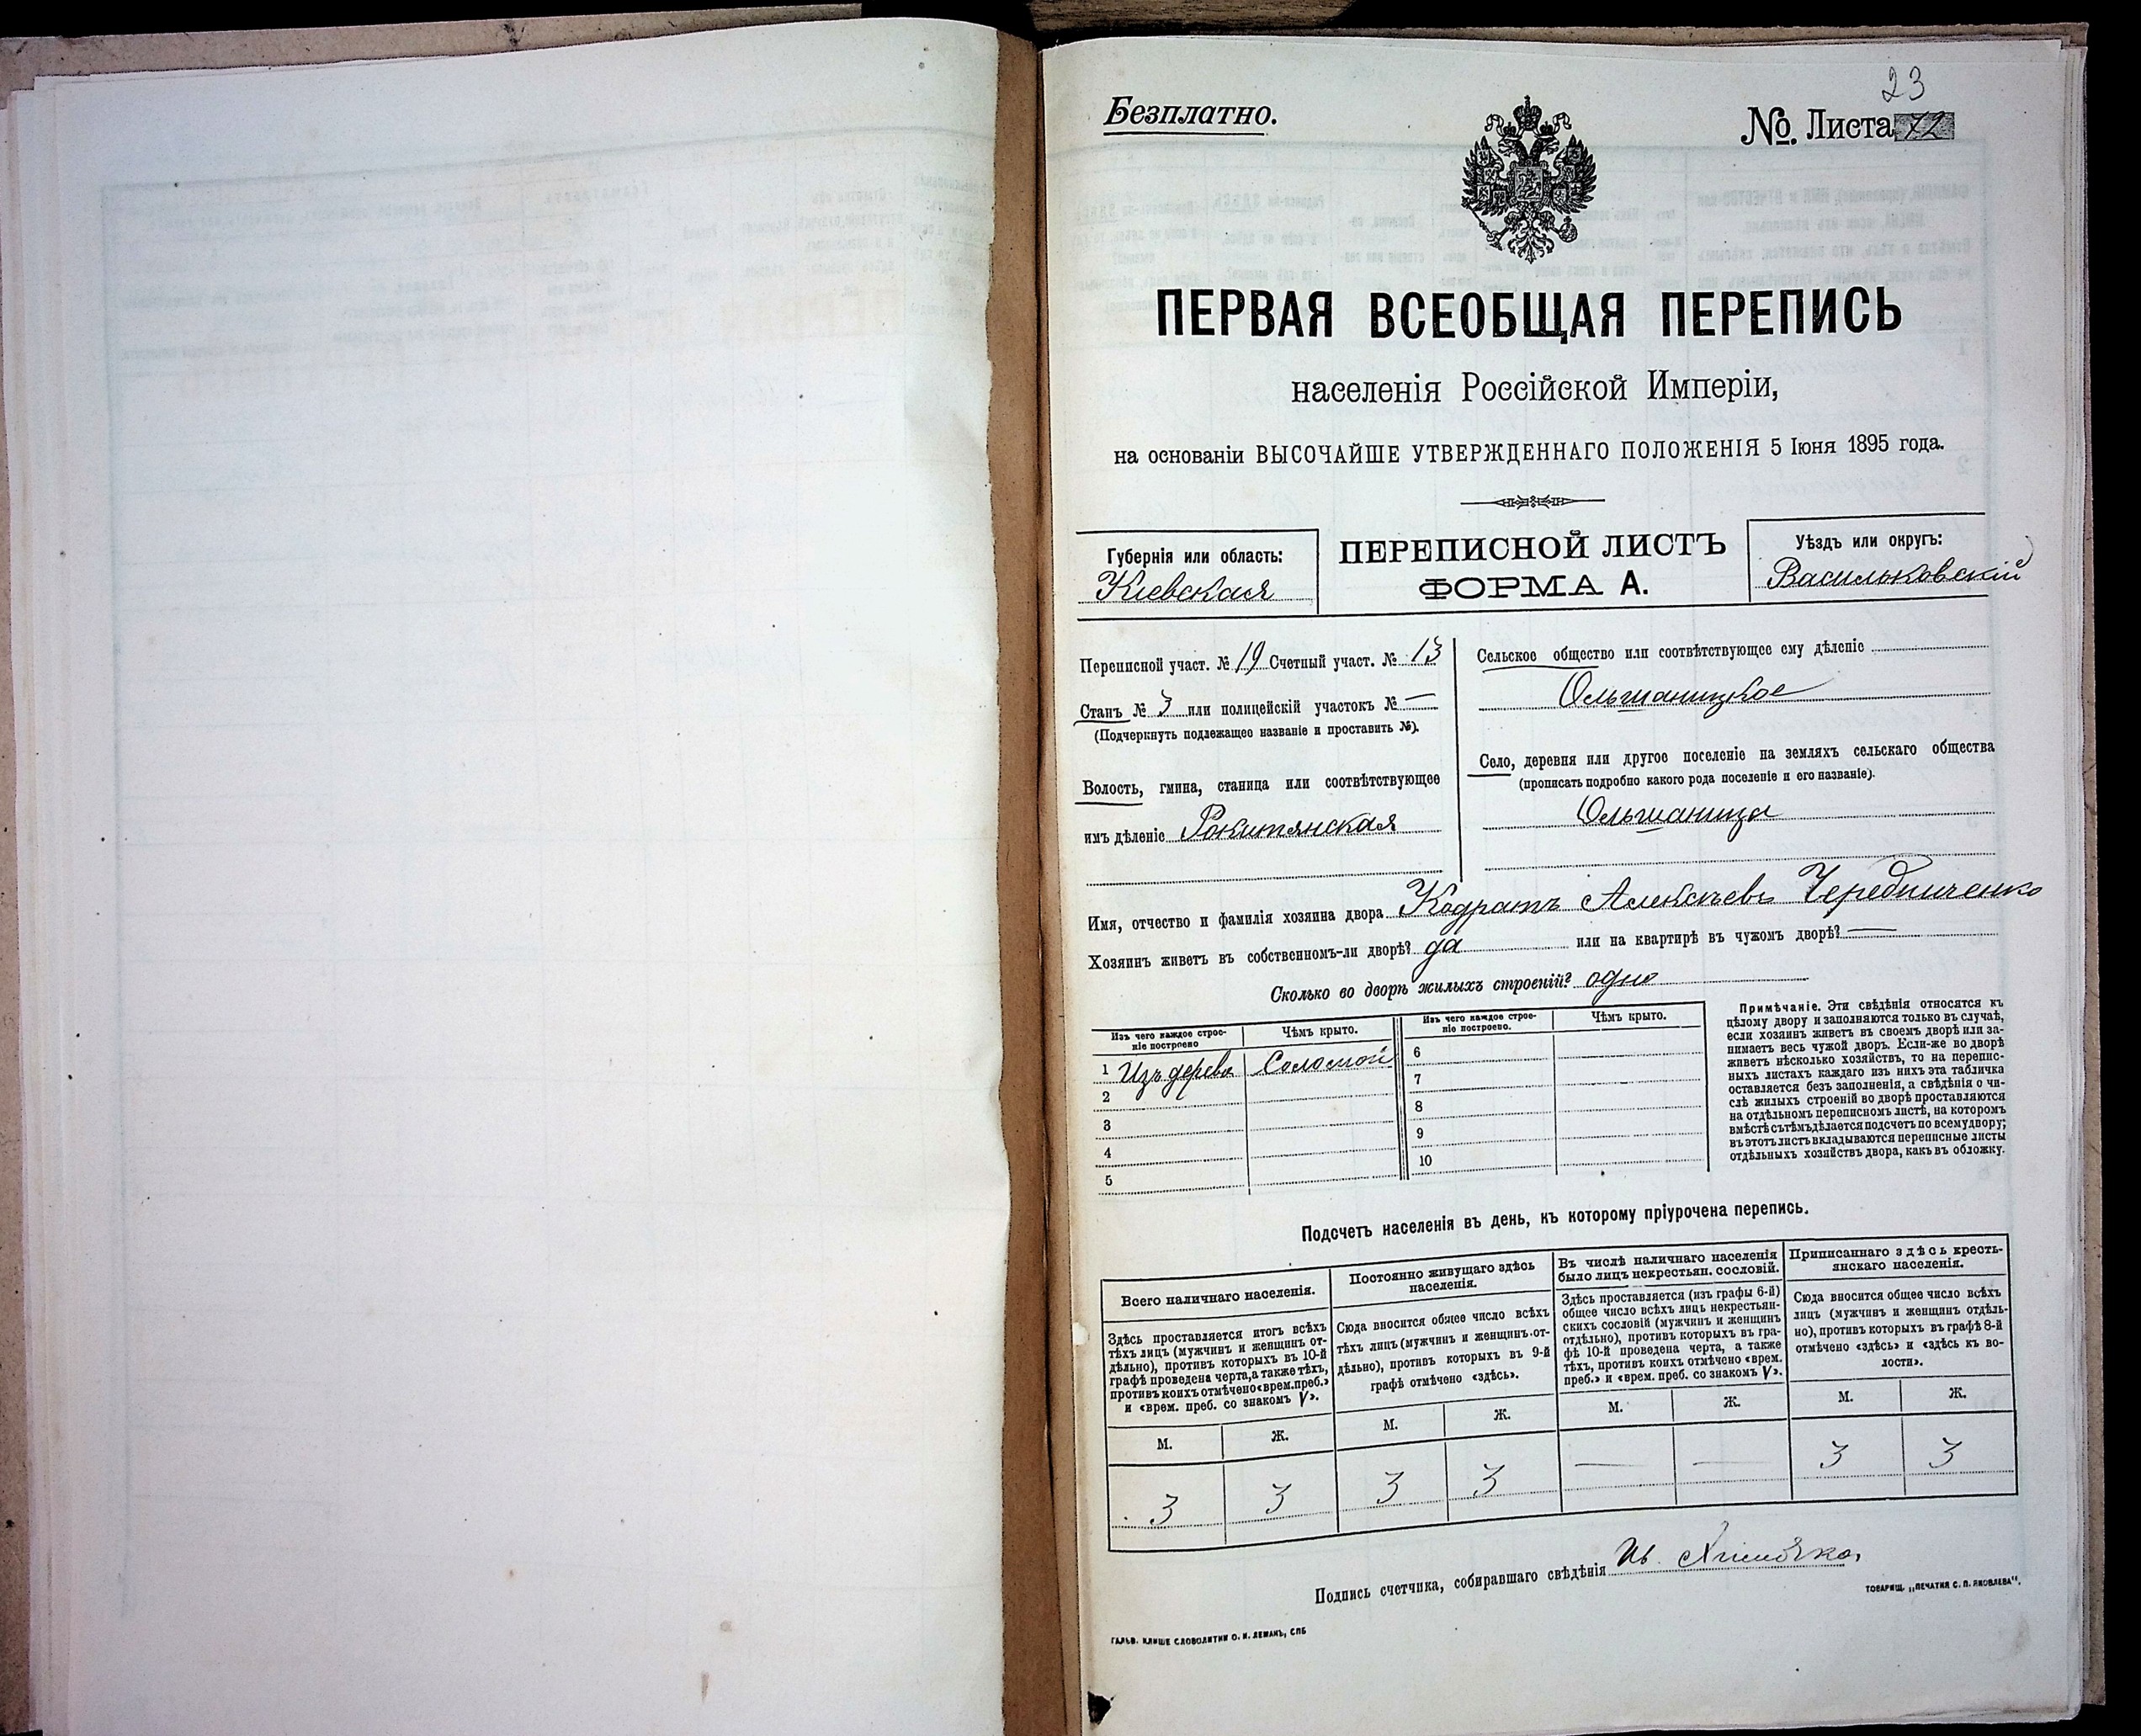 23
Безплатно.
№. Листа 72
ПЕРВАЯ ВСЕОБЩАЯ ПЕРЕПИСЬ
населенія Россійской Имперіи,
на основаніи ВЫСОЧАЙШЕ УТВЕРЖДЕННАГО ПОЛОЖЕНІЯ 5 Іюня 1895 года.
Губернія или область:
Кіевская
ПЕРЕПИСНОЙ ЛИСТЪ
ФОРМА А.
Уѣздъ или округъ:
Васильковскій
Переписной участ. № 19 Счетный участ. № 13
Станъ № 3 или полицейскій участокъ № —
(Подчеркнуть подлежащее названіе и проставить №).
Волость, гмина, станица или соотвѣтствующее
имъ дѣленіе Рокитянская
Сельское общество или соотвѣтствующее ему дѣленіе
Ольшаницкое
Село, деревня или другое поселеніе на земляхъ сельскаго общества
(прописать подробно какого рода поселеніе и его названіе).
Ольшаница
Имя, отчество и фамилія хозяина двора Кодратъ Алексѣевъ Чередниченко
Хозяинъ живетъ въ собственномъ-ли дворѣ? да или на квартирѣ въ чужомъ дворѣ? —
Сколько во дворѣ жилыхъ строеній? одно
Изъ чего каждое строе-
ніе построено
Чѣмъ крыто.
Изъ чего каждое строе-
ніе построено.
Чѣмъ крыто.
1 Изъ дерева Соломой
2
3
4
5
6
7
8
9
10
Примѣчаніе. Эти свѣдѣнія относятся къ
цѣлому двору и заполняются только въ случаѣ,
если хозяинъ живетъ въ своемъ дворѣ или за-
нимаетъ весь чужой дворъ. Если-же во дворѣ
живетъ нѣсколько хозяйствъ, то на перепис-
ныхъ листахъ каждаго изъ нихъ эта табличка
оставляется безъ заполненія, а свѣдѣнія о чи-
слѣ жилыхъ строеній во дворѣ проставляются
на отдѣльномъ переписномъ листѣ, на которомъ
вмѣстѣ съ тѣмъ дѣлается подсчетъ по всему двору;
въ этотъ листъ вкладываются переписные листы
отдѣльныхъ хозяйствъ двора, какъ въ обложку.
Подсчетъ населенія въ день, къ которому пріурочена перепись.
Всего наличнаго населенія.
Здѣсь проставляется итогъ всѣхъ
тѣхъ лицъ (мужчинъ и женщинъ от-
дѣльно), противъ которыхъ въ 10-й
графѣ проведена черта, а также тѣхъ,
противъ коихъ отмѣчено «врем. преб.»
и «врем. преб. со знакомъ V».
М. Ж.
3 3
Постоянно живущаго здѣсь
населенія.
Сюда вносится общее число всѣхъ
тѣхъ лицъ (мужчинъ и женщинъ от-
дѣльно), противъ которыхъ въ 9-й
графѣ отмѣчено «здѣсь».
М. Ж.
3 3
Въ числѣ наличнаго населенія
было лицъ некрестьян. сословій.
Здѣсь проставляется (изъ графы 6-й)
общее число всѣхъ лицъ некрестьян-
скихъ сословій (мужчинъ и женщинъ
отдѣльно), противъ которыхъ въ гра-
фѣ 10-й проведена черта, а также
тѣхъ, противъ коихъ отмѣчено «врем.
преб.» и «врем. преб. со знакомъ V».
М. Ж.
— —
Приписаннаго здѣсь кресть-
янскаго населенія.
Сюда вносится общее число всѣхъ
лицъ (мужчинъ и женщинъ отдѣль-
но), противъ которыхъ въ графѣ 8-й
отмѣчено «здѣсь» и «здѣсь къ во-
лости».
М. Ж.
3 3
Подпись счетчика, собиравшаго свѣдѣнія Ив.
ГАЛЬВ. КЛИШЕ СЛОВОЛИТНИ О. И. ЛЕМАНЪ, СПБ
ТОВАРИЩ. „ПЕЧАТНЯ С. П. ЯКОВЛЕВА“.